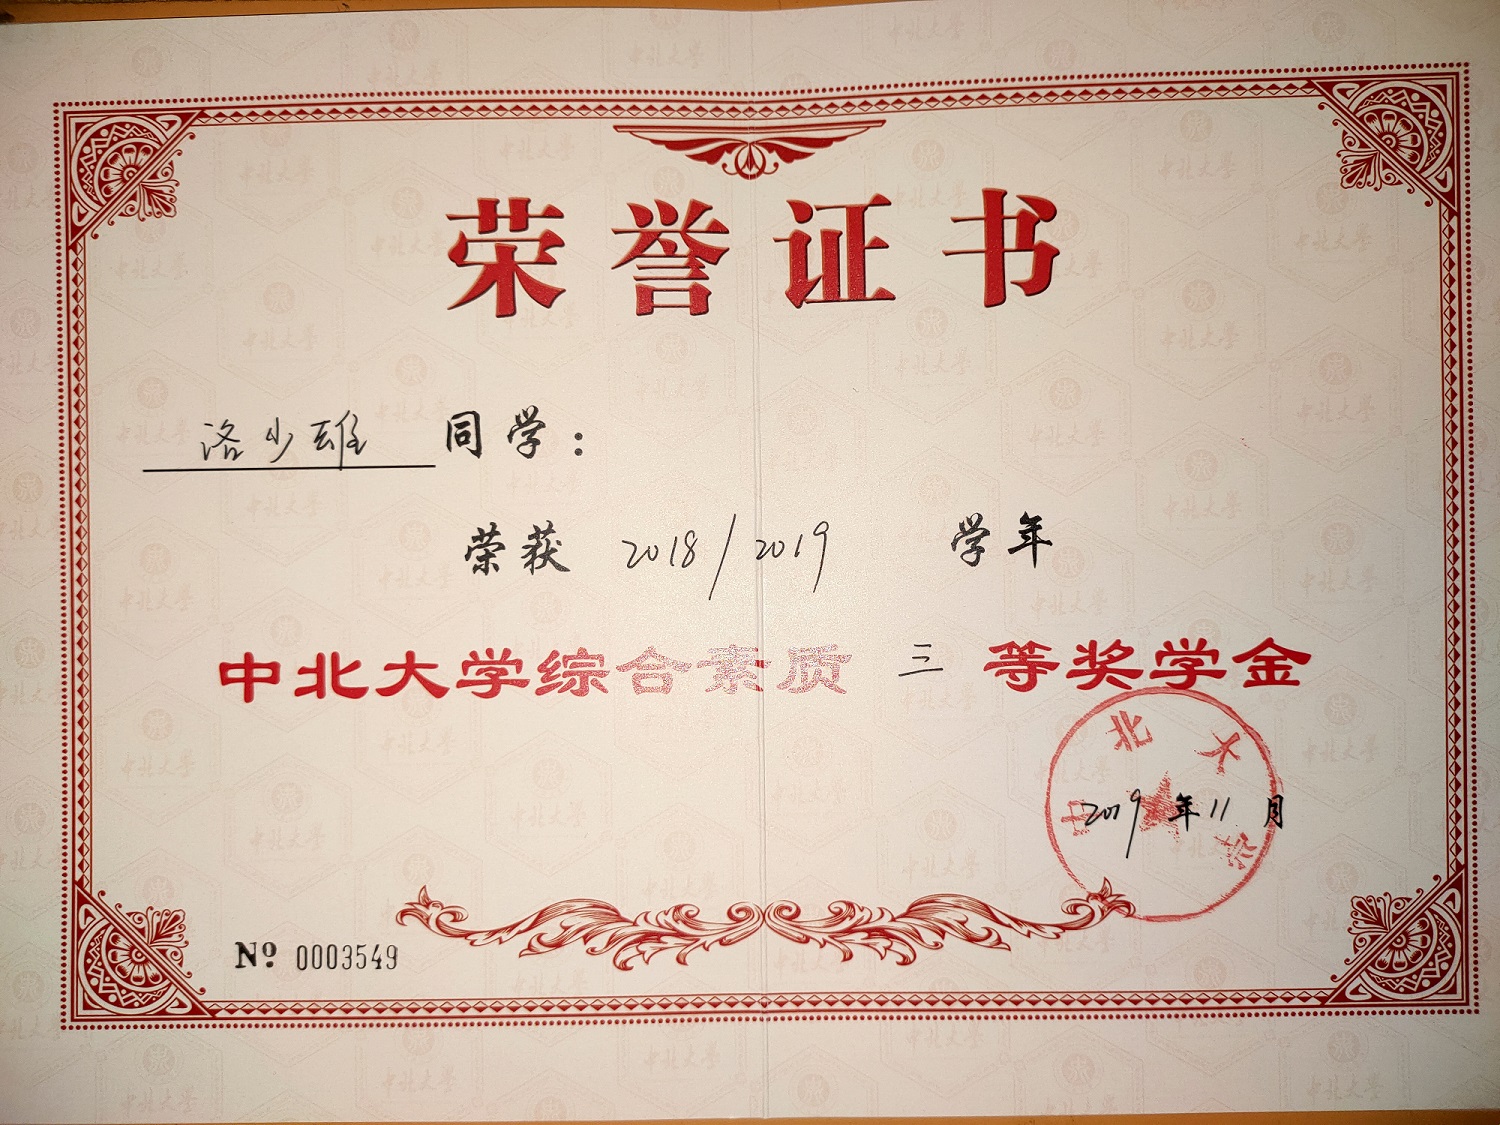 荣誉证书
洛少雄 同学：
荣获 2018/2019 学年
中北大学综合素质 三 等奖学金
中北大学
2019年11月
Nº 0003549